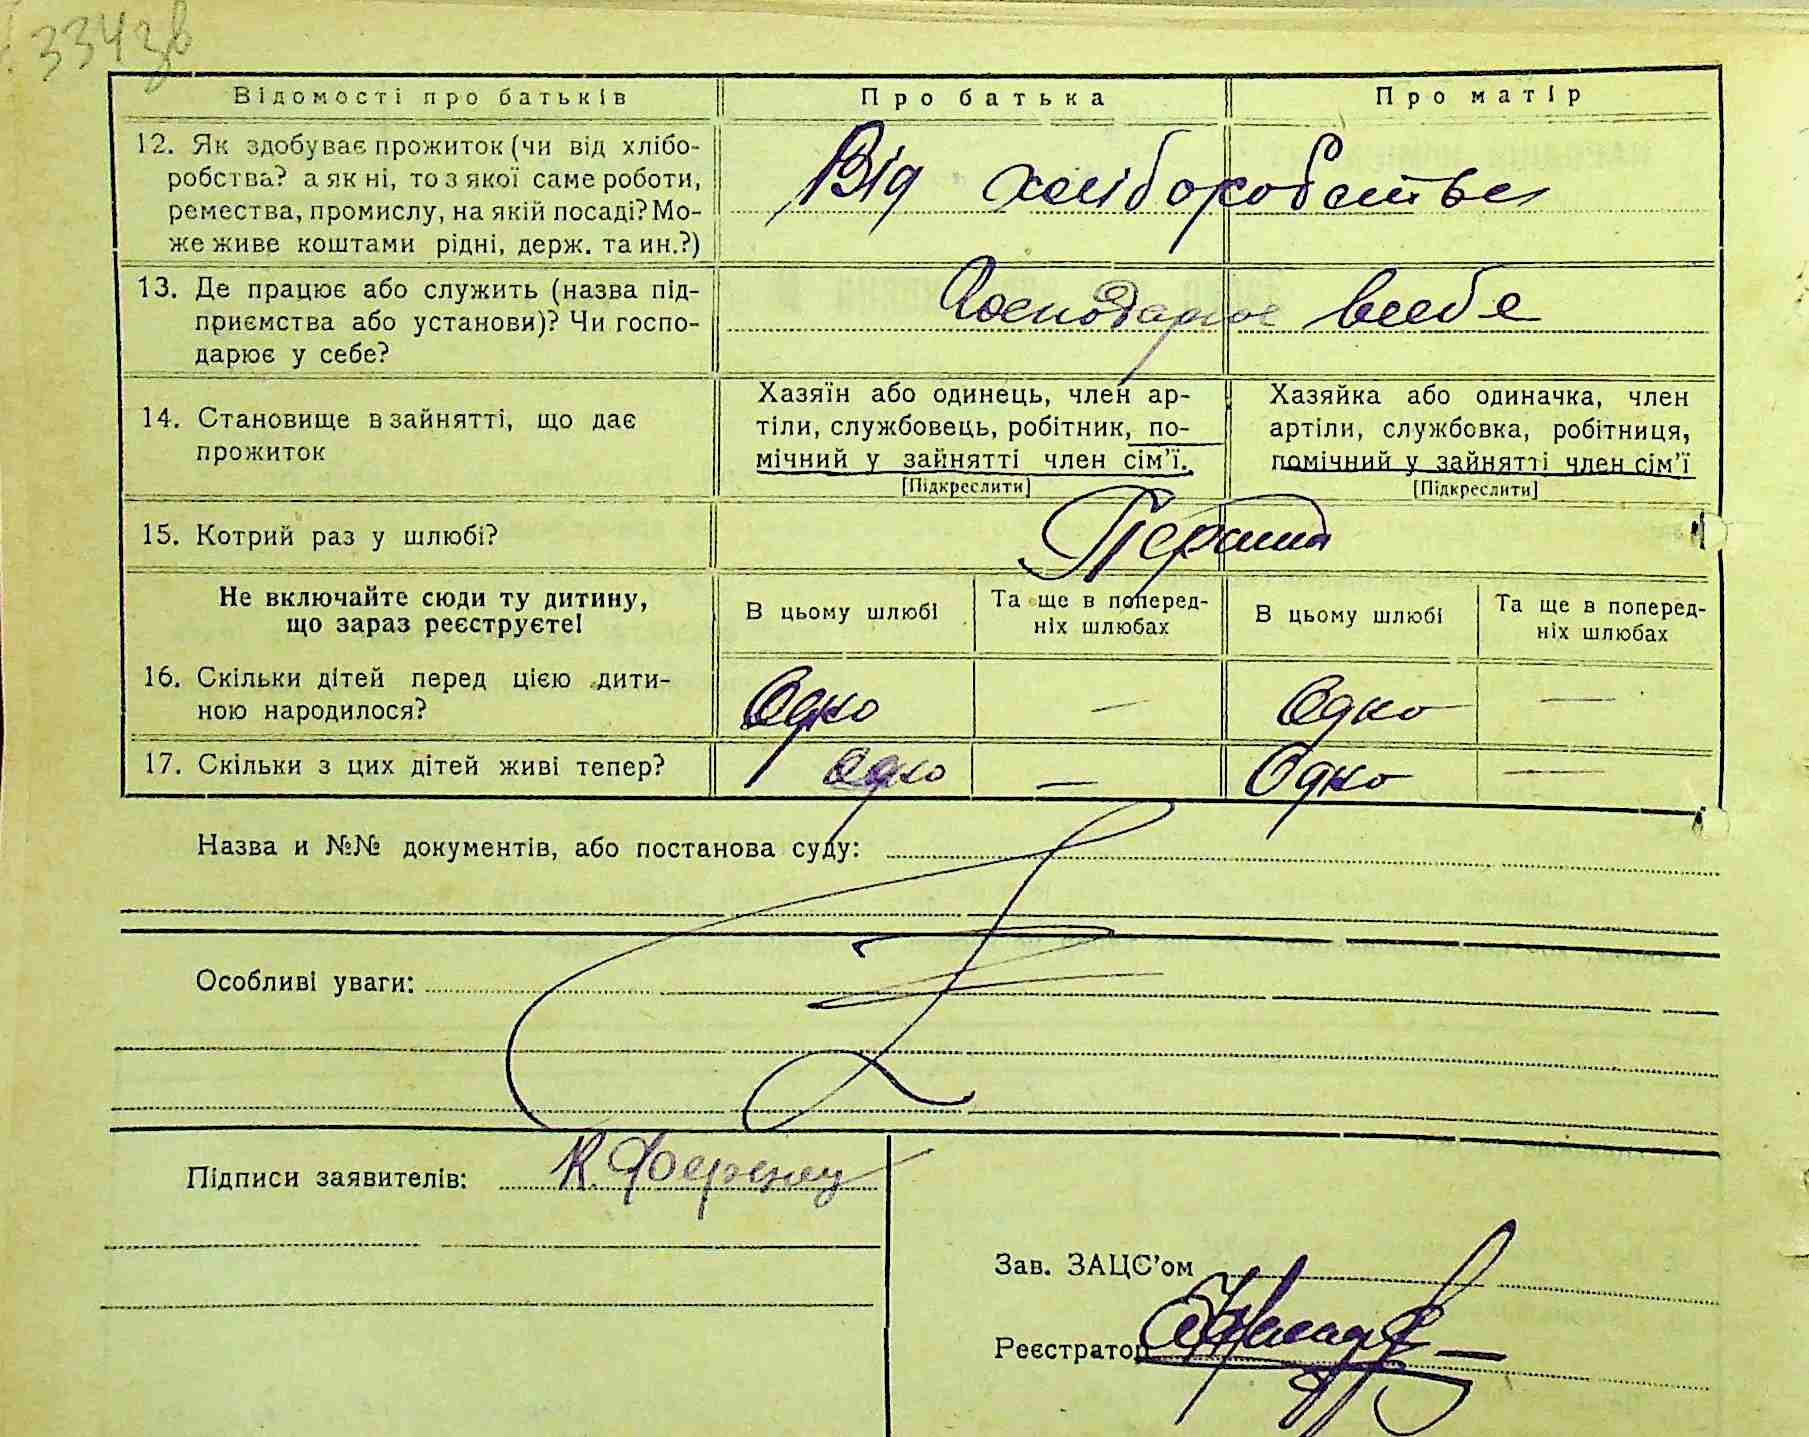 334зв
Відомості про батьків
Про батька
Про матір
12. Як здобуває прожиток (чи від хлібо-
робства? а як ні, то з якої саме роботи,
ремества, промислу, на якій посаді? Мо-
же живе коштами рідні, держ. та ин.?)
Від хліборобства
13. Де працює або служить (назва під-
приємства або установи)? Чи госпо-
дарює у себе?
Господарює в себе
14. Становище в зайнятті, що дає
прожиток
Хазяїн або одинець, член ар-
тіли, службовець, робітник, по-
мічний у зайнятті член сім'ї.
[Підкреслити]
Хазяйка або одиначка, член
артіли, службовка, робітниця,
помічний у зайнятті член сім'ї
[Підкреслити]
15. Котрий раз у шлюбі?
Перший
Не включайте сюди ту дитину,
що зараз реєструєте!
В цьому шлюбі
Та ще в поперед-
ніх шлюбах
В цьому шлюбі
Та ще в поперед-
ніх шлюбах
16. Скільки дітей перед цією дити-
ною народилося?
Одно
—
Одно
—
17. Скільки з цих дітей живі тепер?
Одно
—
Одно
—
Назва и №№ документів, або постанова суду:
Особливі уваги:
Підписи заявителів:
К.
Зав. ЗАЦС'ом
Реєстратор